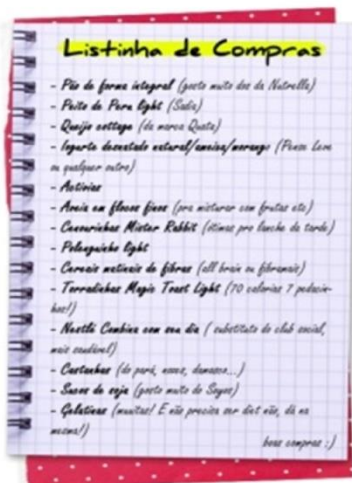 Listinha de Compras
- Pão de forma integral (gosto muito dos da Nutrella)
- Peito de Peru light (Sadia)
- Queijo cottage (da marca Quata)
- Iogurte desnatado natural/ameixa/morango (Pense Leve
ou qualquer outro)
- Activias
- Aveia em flocos finos (pra misturar com frutas etc)
- Cenourinhas Mister Rabbit (ótimas pro lanche da tarde)
- Polenguinho light
- Cereais matinais de fibras (all brain ou fibramais)
- Torradinhas Magic Toast Light (70 calorias 7 pedacin-
hos!)
- Nestlé Combina com seu dia ( substituto do club social,
mais saudável)
- Castanhas (do pará, nozes, damasco...)
- Sucos de soja (gosto muito do Soyos)
- Gelatinas (muitas! E não precisa ser diet não, dá na
mesma!)
boas compras :)